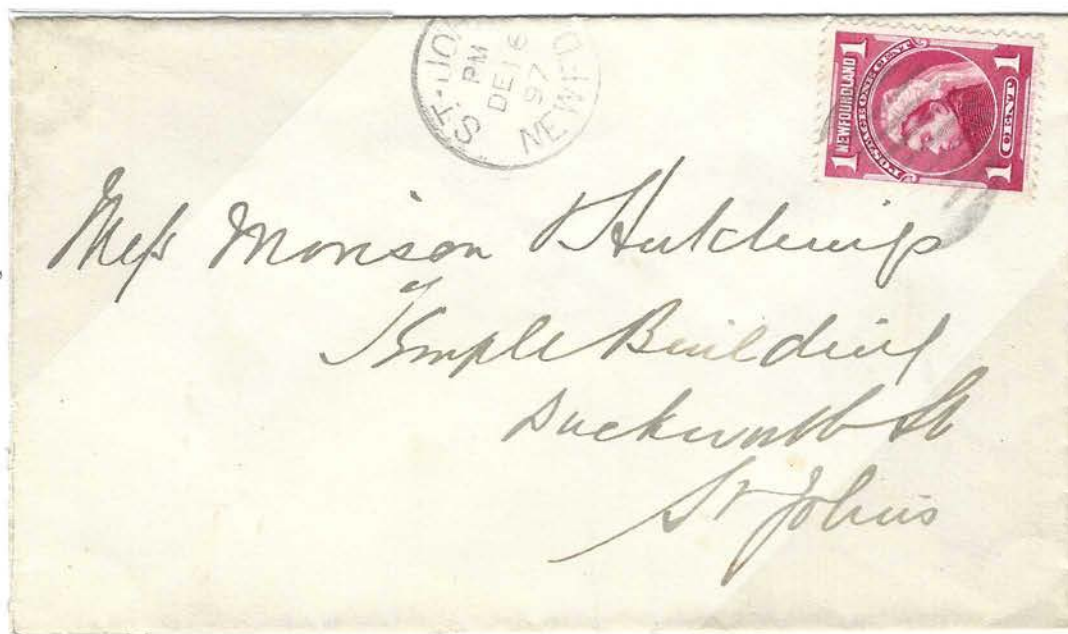 ST. JO
PM
DE 16
97
NEWF'D
NEWFOUNDLAND
1 1
POSTAGE ONE CENT
1 CENT 1
Mess Morison & Hutchings
Temple Building
Duckworth St
St Johns